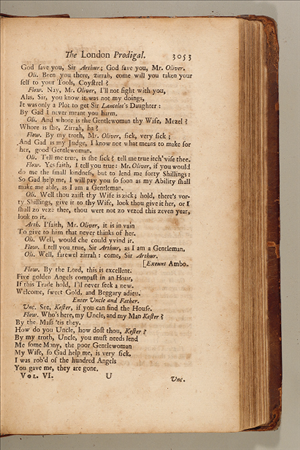 The London Prodigal. 3053
God save you, Sir Arthur; God save you, Mr. Oliver.
Oli. Been you there, zirrah, come will you taken your
self to your Tools, Coystrel?
Flow. Nay, Mr. Oliver, I'll not fight with you,
Alas, Sir, you know it was not my doings,
It was only a Plot to get Sir Lancelot's Daughter:
By God I never meant you harm.
Oli. And whore is the Gentlewoman thy Wife, Mezel?
Whore is she, Zirrah, ha?
Flow. By my troth, Mr. Oliver, sick, very sick;
And God is my Judge, I know not what means to make for
her, good Gentlewoman.
Oli. Tell me true, is she sick? tell me true itch' vise thee.
Flow. Yes faith, I tell you true: Mr. Oliver, if you would
do me the small kindness, but to lend me forty Shillings:
So God help me, I will pay you so soon as my Ability shall
make me able, as I am a Gentleman.
Oli. Well thou zaist thy Wife is zick; hold, there's vor-
ty Shillings, give it to thy Wife, look thou give it her, or I
shall zo veze thee, thou wert not zo vezed this zeven year,
look to it.
Arth. I'faith, Mr. Oliver, it is in vain
To give to him that never thinks of her.
Oli. Well, would che could yvind it.
Flow. I tell you true, Sir Arthur, as I am a Gentleman.
Oli. Well, farewel zirrah: come, Sir Arthur.
[Exeunt Ambo.
Flow. By the Lord, this is excellent.
Five golden Angels compast in an Hour,
If this Trade hold, I'll never seek a new.
Welcome, sweet Gold, and Beggary adieu.
Enter Uncle and Father.
Unc. See, Kester, if you can find the House.
Flow. Who's here, my Uncle, and my Man Kester?
By the Mass 'tis they.
How do you Uncle, how dost thou, Kester?
By my troth, Uncle, you must needs lend
Me some Mony, the poor Gentlewoman
My Wife, so God help me, is very sick,
I was rob'd of the hundred Angels
You gave me, they are gone.
VOL. VI. U Unc.